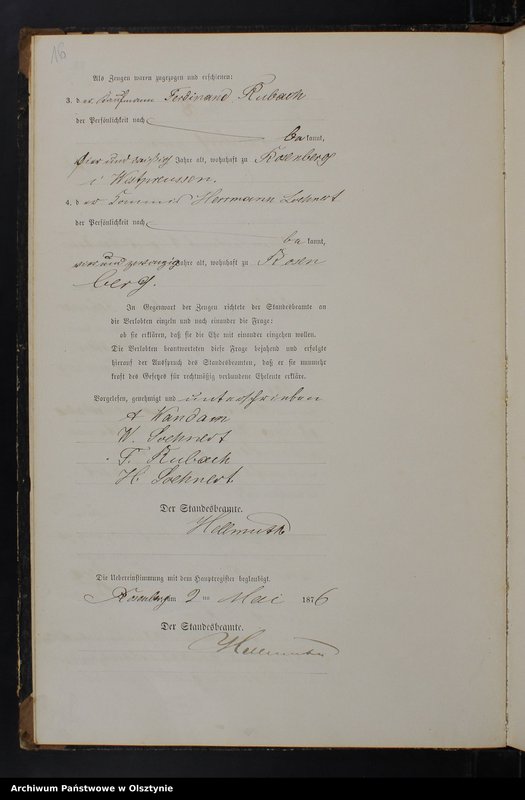 16
Als Zeugen waren zugezogen und erschienen:
3. d er Kaufmann Ferdinand Rubach
der Persönlichkeit nach
be kannt,
vier und dreißig Jahre alt, wohnhaft zu Rosenberg
i Westpreussen.
4. d er Commis Herrmann Loehnert
der Persönlichkeit nach
be kannt,
und zwanzig Jahre alt, wohnhaft zu Rosen
berg.
In Gegenwart der Zeugen richtete der Standesbeamte an
die Verlobten einzeln und nach einander die Frage:
ob sie erklären, daß sie die Ehe mit einander eingehen wollen.
Die Verlobten beantworteten diese Frage bejahend und erfolgte
hierauf der Ausspruch des Standesbeamten, daß er sie nunmehr
kraft des Gesetzes für rechtmäßig verbundene Eheleute erkläre.
Vorgelesen, genehmigt und unterschrieben
A Wandam
W. Loehnert
F. Rubach
H. Loehnert
Der Standesbeamte.
Hellmuth
Die Uebereinstimmung mit dem Hauptregister beglaubigt.
Rosenberg am 2 ten Mai 1876
Der Standesbeamte.
Hellmuth
Archiwum Państwowe w Olsztynie